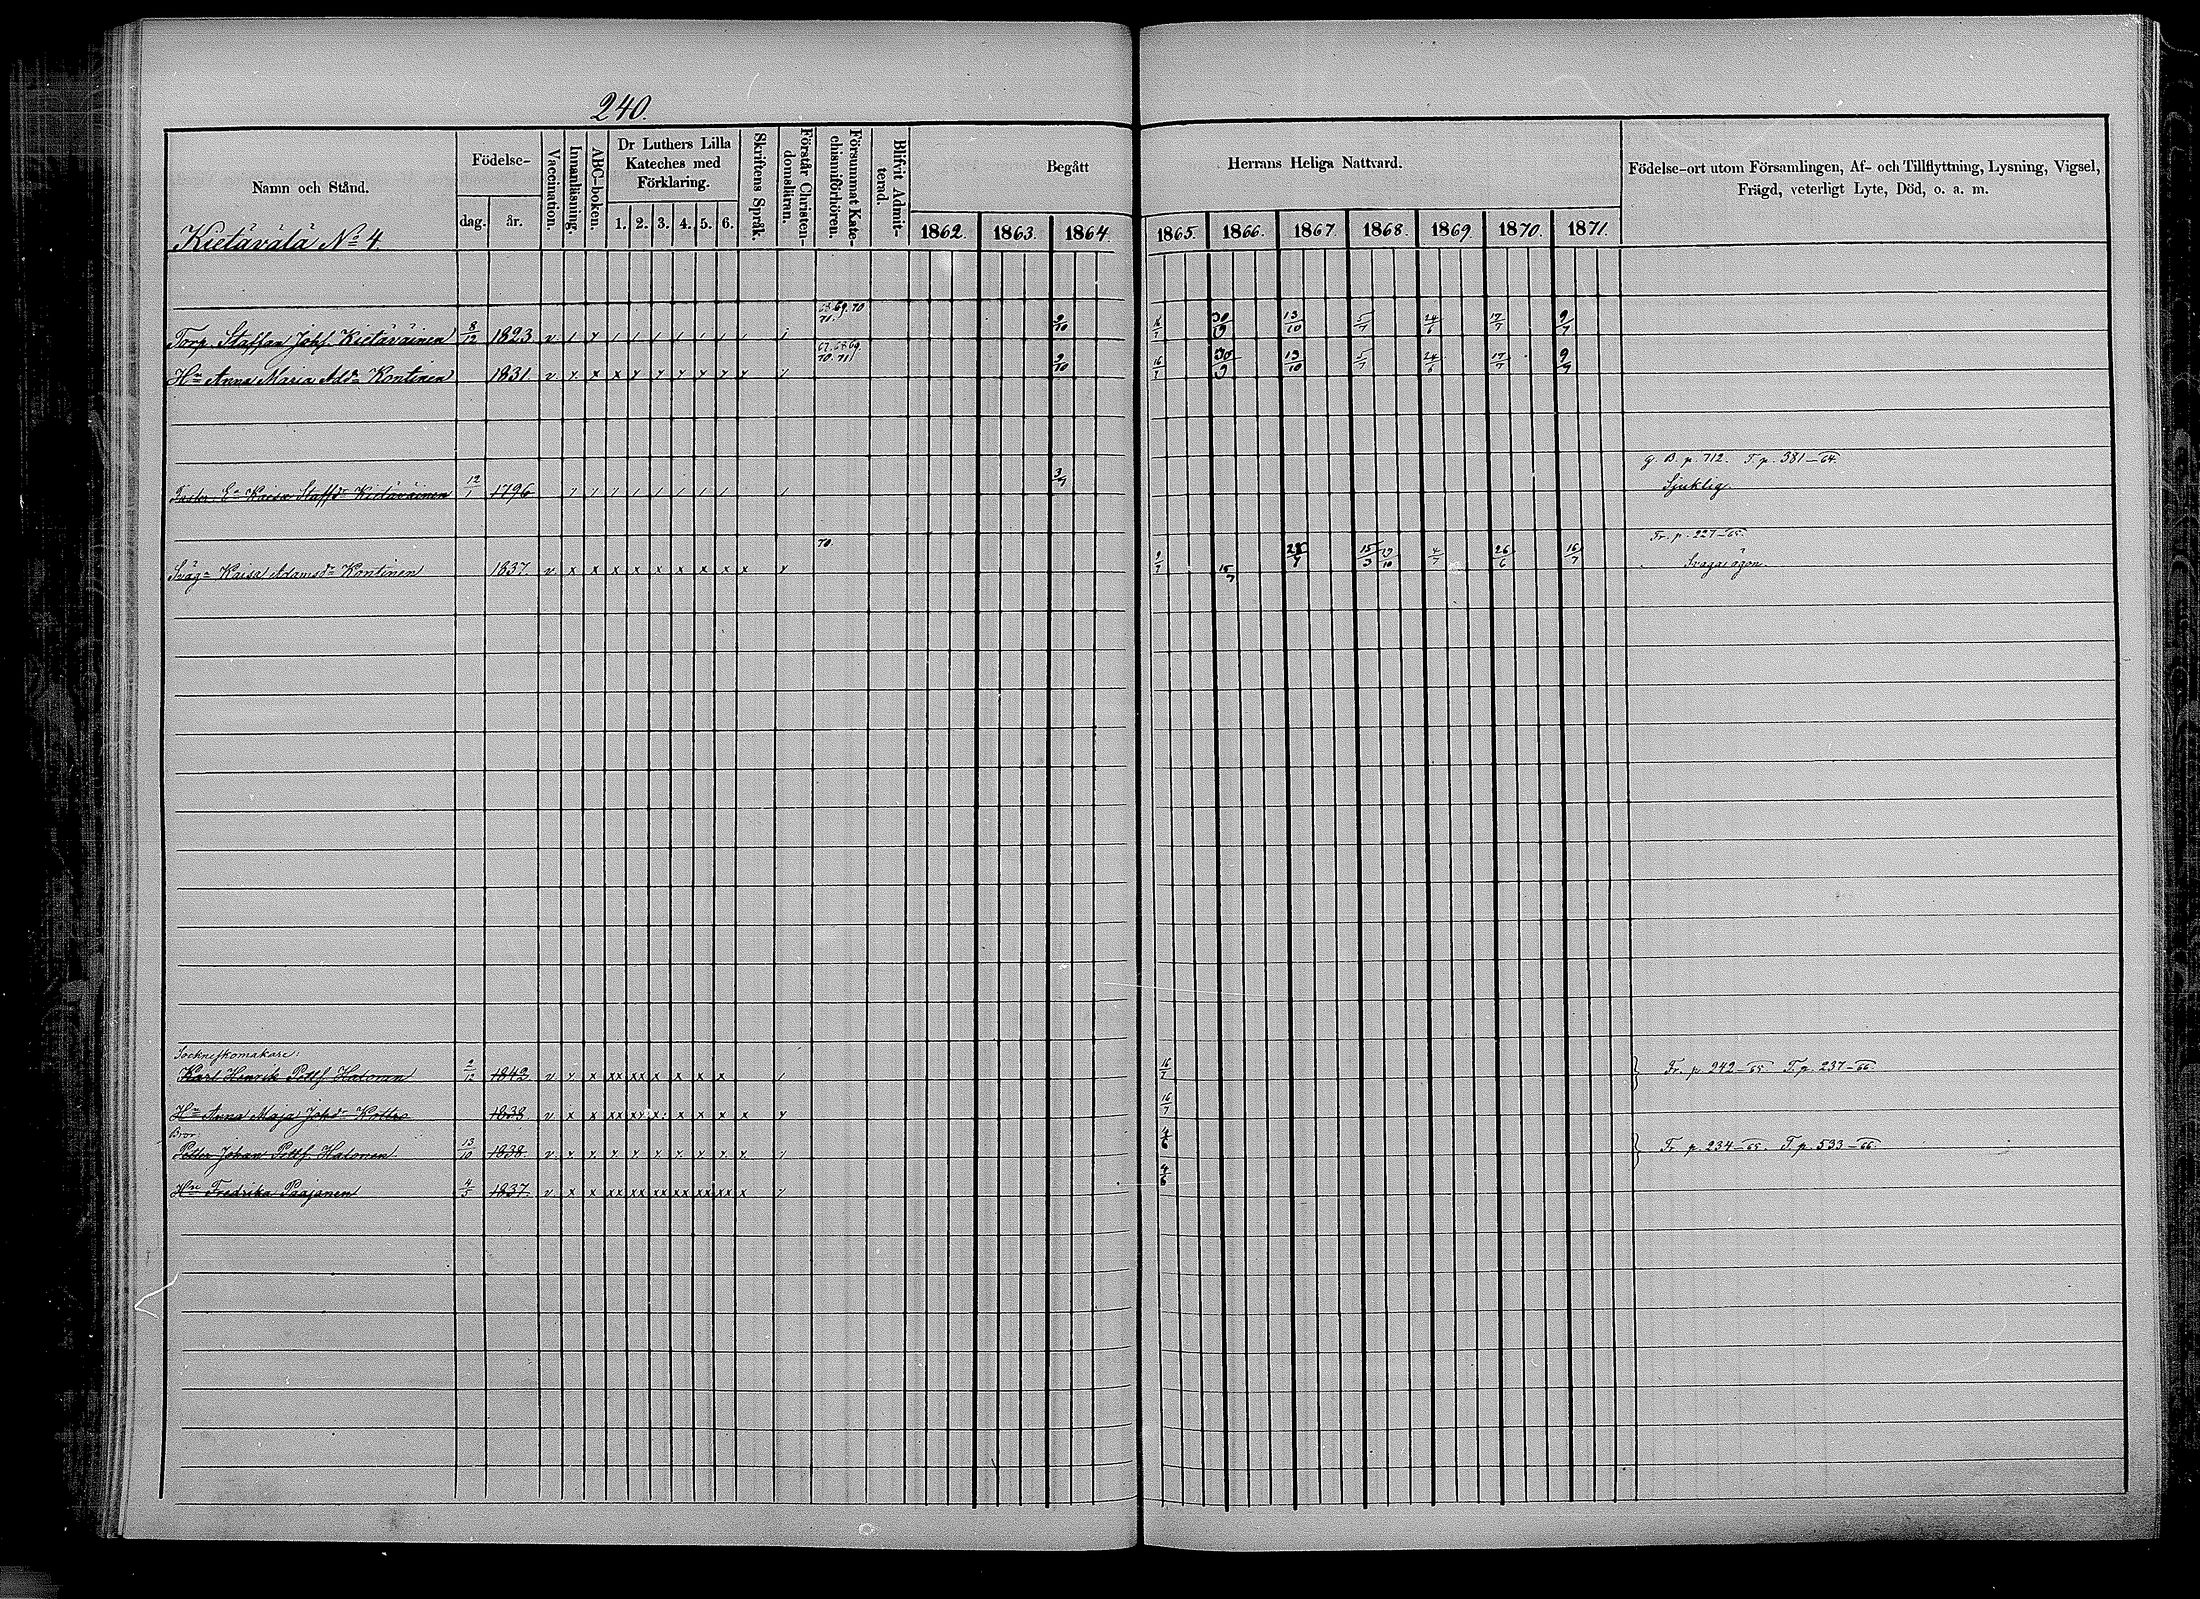 240.
Namn och Stånd.
Kietävälä No 4
Födelse-
dag. år.
Vaccination.
Innanläsning.
ABC-boken.
Dr Luthers Lilla
Kateches med
Förklaring.
1. 2. 3. 4. 5. 6.
Skriftens Språk.
Förstår Christen-
domsläran.
Försummat Kate-
chismiförhören.
Blifvit Admit-
terad.
Begått Herrans Heliga Nattvard.
1862. 1863. 1864. 1865. 1866. 1867. 1868. 1869. 1870. 1871.
Födelse-ort utom Församlingen, Af- och Tillflyttning, Lysning, Vigsel,
Frägd, veterligt Lyte, Död, o. a. m.
69. 70
71.
Torp. Staffan Johs. Kietäväinen 8/12 1823 v 9/10 16/7 30/9 13/10 5/7 24/6 17/7 9/7
67. 68 69
70. 71
Hu Anna Maria Add. Kontinen 1831 v x x x x x x x x x 9/10 16/7 30/9 13/10 5/7 24/6 17/7 9/7
g. B. p. 712. T. p. 381-64.
Kaisa Staffdr Kietäväinen 12/1 1796 3/7 Sjuklig
Fr. p. 227-65.
70.
Sväg. Kaisa Adamsdr Kontinen 1837. v x x x x x x x x x 9/7 15/7 15/3 4/7 26/6 16/7 Svaga ögon.
Socknes komakare:
Karl Henrik Pettf. Halonen 2/12 1842 v x x xx xx x x x x 16/7 Fr. p. 242-65. T. p. 237-66.
Hu Anna Maja Johdr 1838 v x x xx xx x x x x x 16/7
Bror
Petter Johan Pettf. Halonen 13/10 1838. v 4/6 Fr. p. 234-65. T. p. 533-66.
Hu Fredrika Paajanen 4/5 1837. v x x xx xx xx xx xx xx x 4/6